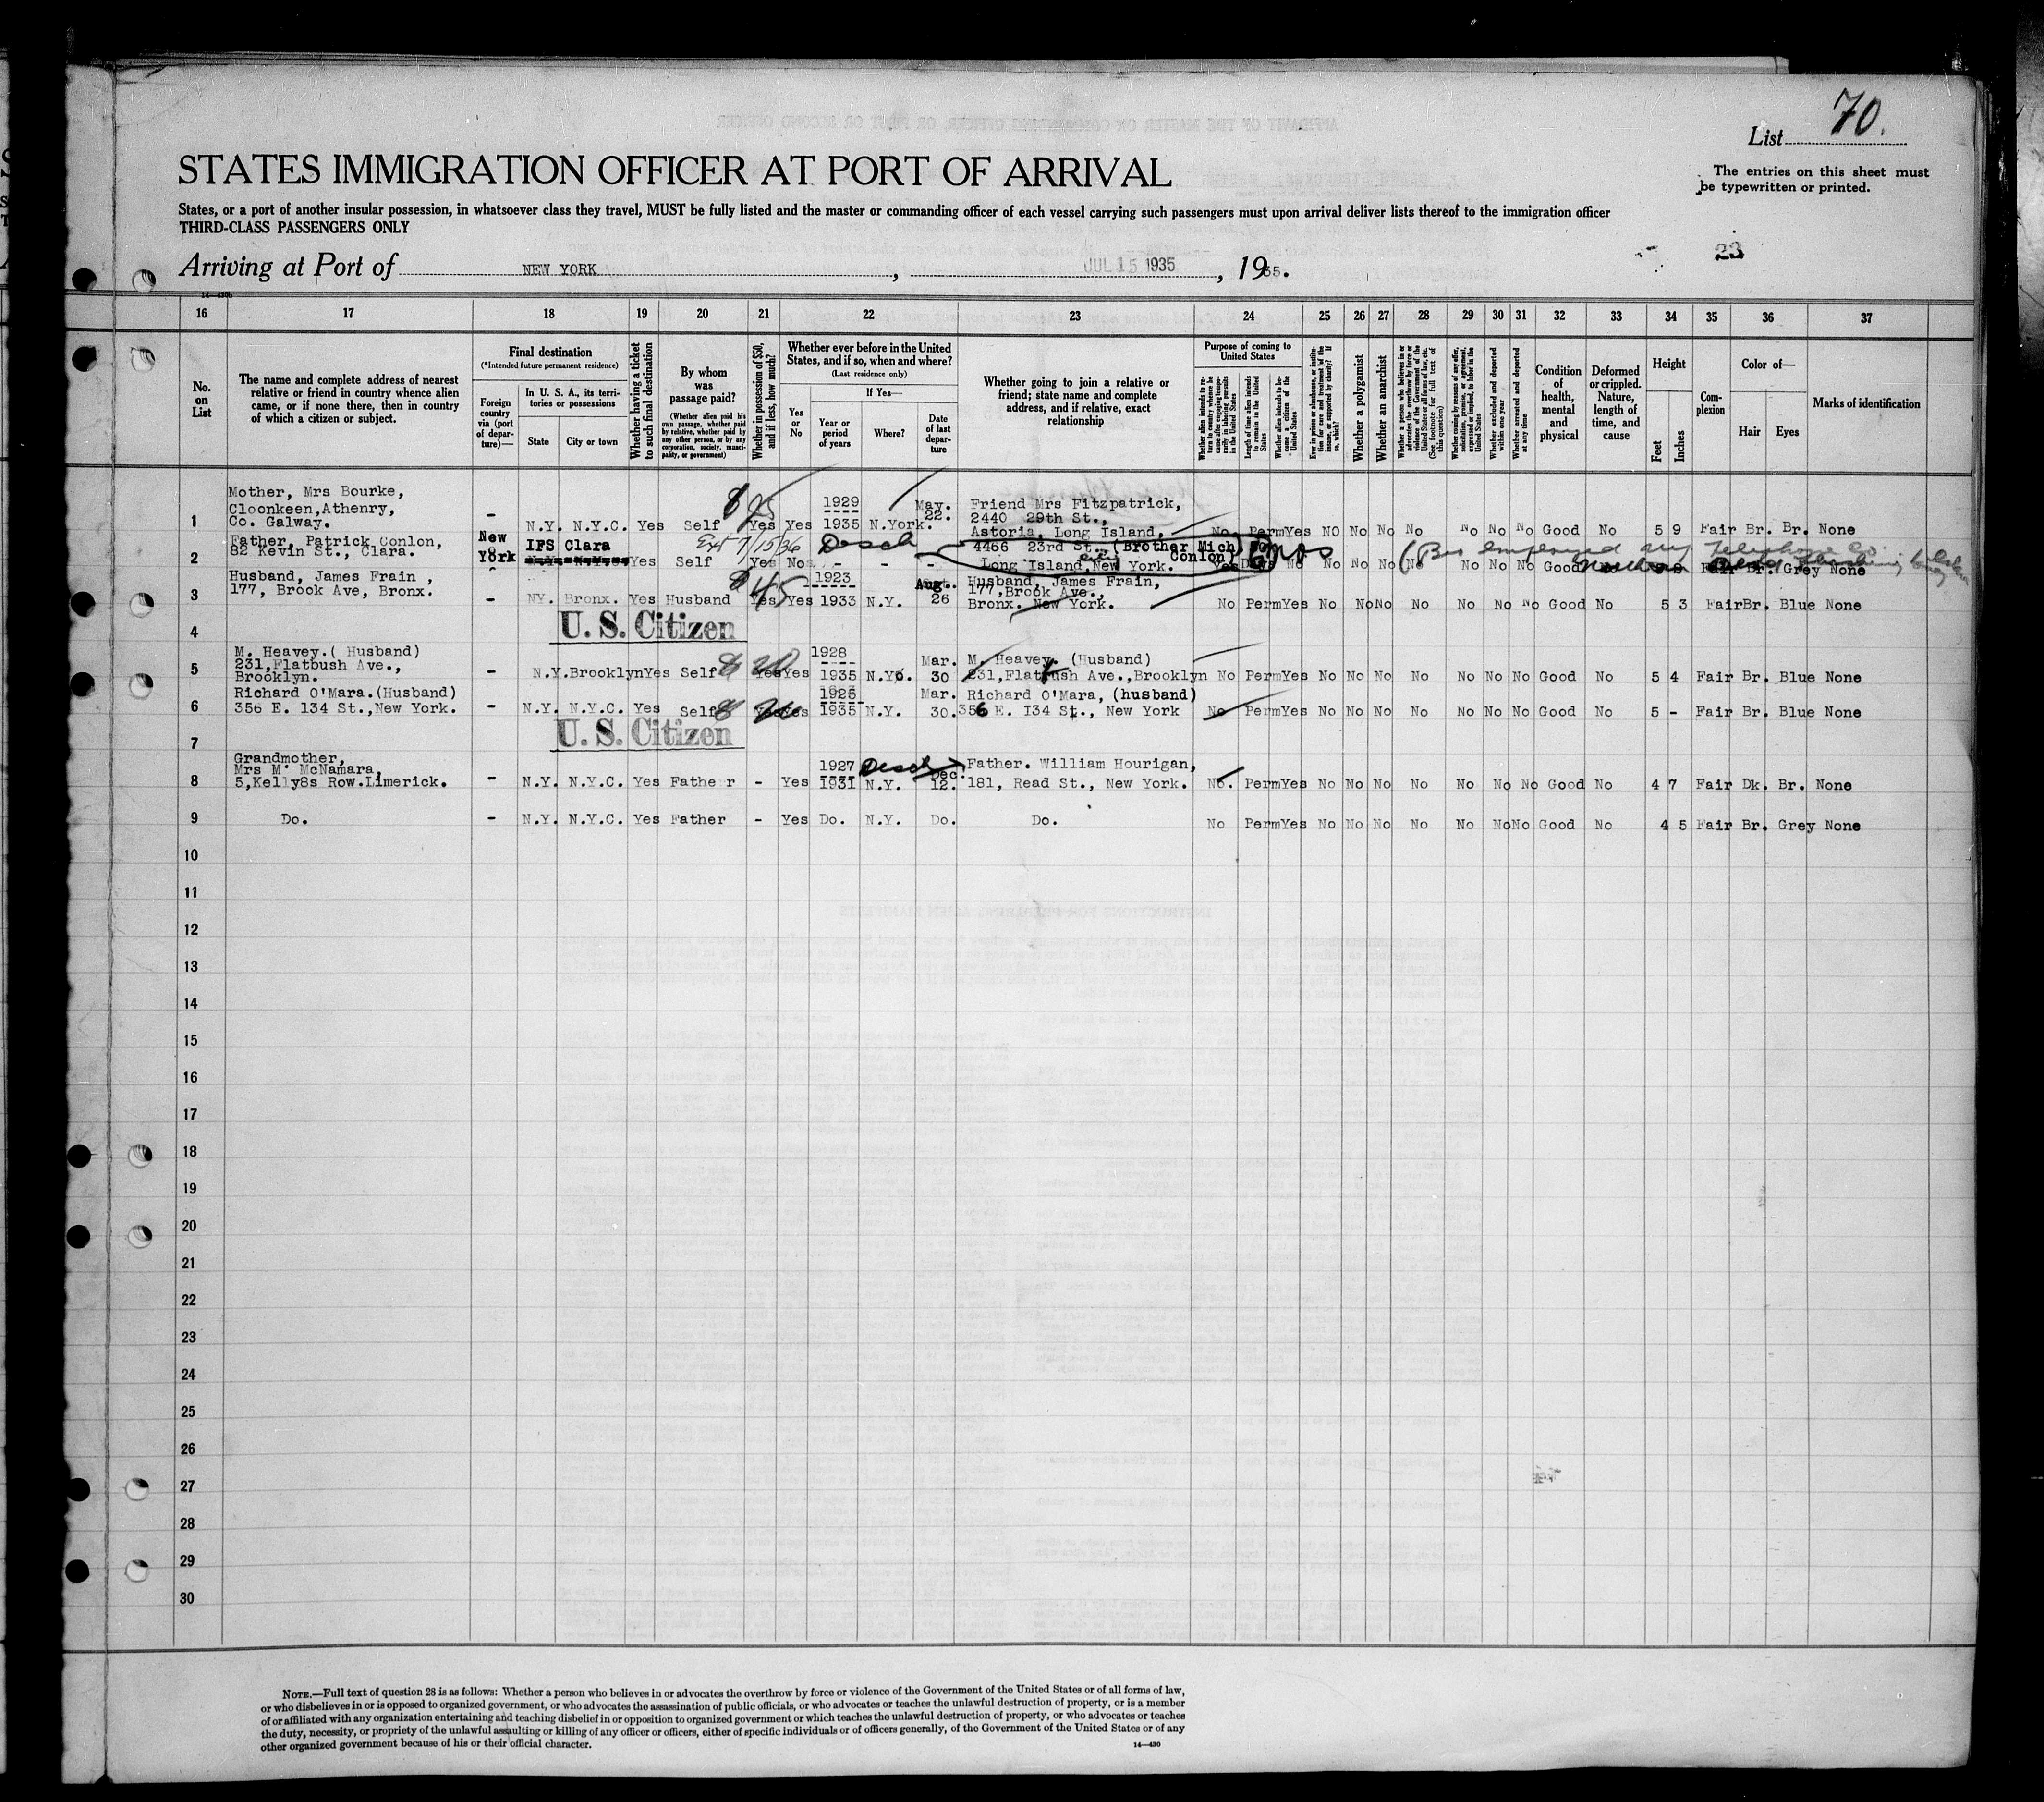 List 70.
STATES IMMIGRATION OFFICER AT PORT OF ARRIVAL
The entries on this sheet must
be typewritten or printed.
States, or a port of another insular possession, in whatsoever class they travel, MUST be fully listed and the master or commanding officer of each vessel carrying such passengers must upon arrival deliver lists thereof to the immigration officer
THIRD-CLASS PASSENGERS ONLY
23
Arriving at Port of NEW YORK, JUL 15 1935, 1935.
16 17 18 19 20 21 22 23 24 25 26 27 28 29 30 31 32 33 34 35 36 37
No. on List
The name and complete address of nearest relative or friend in country whence alien came, or if none there, then in country of which a citizen or subject.
Final destination
(*Intended future permanent residence)
Foreign country via (port of departure)—
In U. S. A., its territories or possessions
State
City or town
Whether having a ticket to such final destination
By whom was passage paid?
(Whether alien paid his own passage, whether paid by relative, whether paid by any other person, or by any corporation, society, municipality, or government)
Whether in possession of $50, and if less, how much?
Whether ever before in the United States, and if so, when and where?
(Last residence only)
Yes or No
If Yes—
Year or period of years
Where?
Date of last departure
Whether going to join a relative or friend; state name and complete address, and if relative, exact relationship
Purpose of coming to United States
Whether alien intends to return to country whence he came after engaging temporarily in laboring pursuits in the United States
Length of time alien intends to remain in the United States
Whether alien intends to become a citizen of the United States
Ever in prison or almshouse, or institution for care and treatment of the insane, or supported by charity? If so, which?
Whether a polygamist
Whether an anarchist
Whether a person who believes in or advocates the overthrow by force or violence of the Government of the United States or all forms of law, etc. (See footnote for full text of this question)
Whether coming by reason of any offer, solicitation, promise, or agreement, expressed or implied, to labor in the United States
Whether excluded and deported within one year
Whether arrested and deported at any time
Condition of health, mental and physical
Deformed or crippled. Nature, length of time, and cause
Height
Feet
Inches
Complexion
Color of—
Hair
Eyes
Marks of identification
Mother, Mrs Bourke,
Cloonkeen,Athenry,
Co. Galway.
1 - N.Y. N.Y.C. Yes Self $95 Yes Yes 1929 ---- 1935 N.York. May. 22. Friend Mrs Fitzpatrick,
2440 29th St.,
Astoria, Long Island, No PermYes NO No No No No No No Good No 5 9 Fair Br. Br. None
Father, Patrick Conlon,
82 Kevin St., Clara.
2 New York IFS Clara Yes Self Ext 7/15/36 Yes No - - - 4466 23rd St., (Brother Mich Conlon)
Long Island,New York. Yes No No No No No No No No Good Fair Br. Grey None
Husband, James Frain ,
177, Brook Ave, Bronx.
3 - NY. Bronx. Yes Husband $45 Yes Yes 1923 ---- 1933 N.Y. Augt. 26 Husband, James Frain,
177,Brook Ave.,
Bronx. New York. No PermYes No No No No No No No Good No 5 3 Fair Br. Blue None
4 U. S. Citizen
M. Heavey.( Husband)
231,Flatbush Ave.,
Brooklyn.
5 - N.Y.Brooklyn Yes Self $ 20 Yes Yes 1928 ---- 1935 N.Y. Mar. 30 M. Heavey. (Husband)
231,Flatbush Ave.,Brooklyn No PermYes No No No No No No No Good No 5 4 Fair Br. Blue None
Richard O'Mara.(Husband)
356 E. 134 St.,New York.
6 - N.Y. N.Y.C. Yes Self $ 20 Yes Yes 1925 ---- 1935 N.Y. Mar. 30. Richard O'Mara, (husband)
356 E. I34 St., New York No PermYes No No No No No No No Good No 5 - Fair Br. Blue None
7 U. S. Citizen
Grandmother,
Mrs M. McNamara,
5,Kelly8s Row.Limerick.
8 - N.Y. N.Y.C. Yes Father - Yes 1927 ---- 1931 N.Y. Dec. 12. Father. William Hourigan,
181, Read St., New York. No. PermYes No No No No No No No Good No 4 7 Fair Dk. Br. None
9 Do. - N.Y. N.Y.C. Yes Father - Yes Do. N.Y. Do. Do. No PermYes No No No No No No No Good No 4 5 Fair Br. Grey None
10
11
12
13
14
15
16
17
18
19
20
21
22
23
24
25
26
27
28
29
30
NOTE.—Full text of question 28 is as follows: Whether a person who believes in or advocates the overthrow by force or violence of the Government of the United States or of all forms of law,
or who disbelieves in or is opposed to organized government, or who advocates the assassination of public officials, or who advocates or teaches the unlawful destruction of property, or is a member
of or affiliated with any organization entertaining and teaching disbelief in or opposition to organized government or which teaches the unlawful destruction of property, or who advocates or teaches
the duty, necessity, or propriety of the unlawful assaulting or killing of any officer or officers, either of specific individuals or of officers generally, of the Government of the United States or of any
other organized government because of his or their official character.
14—430